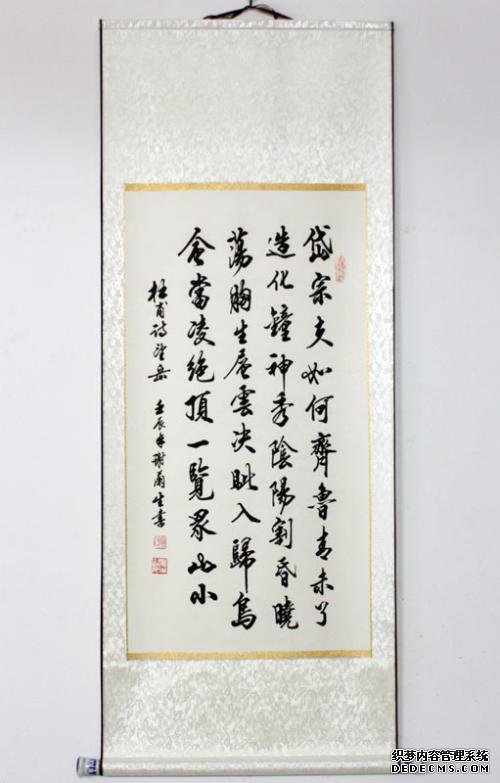 岱宗夫如何齊魯青未了
造化鐘神秀陰陽割昏曉
蕩胸生层雲决眦入歸鳥
会當凌絕頂一覽眾山小
杜甫詩望岳 壬辰年謝生書
织梦内容管理系统
DEDECMS.COM